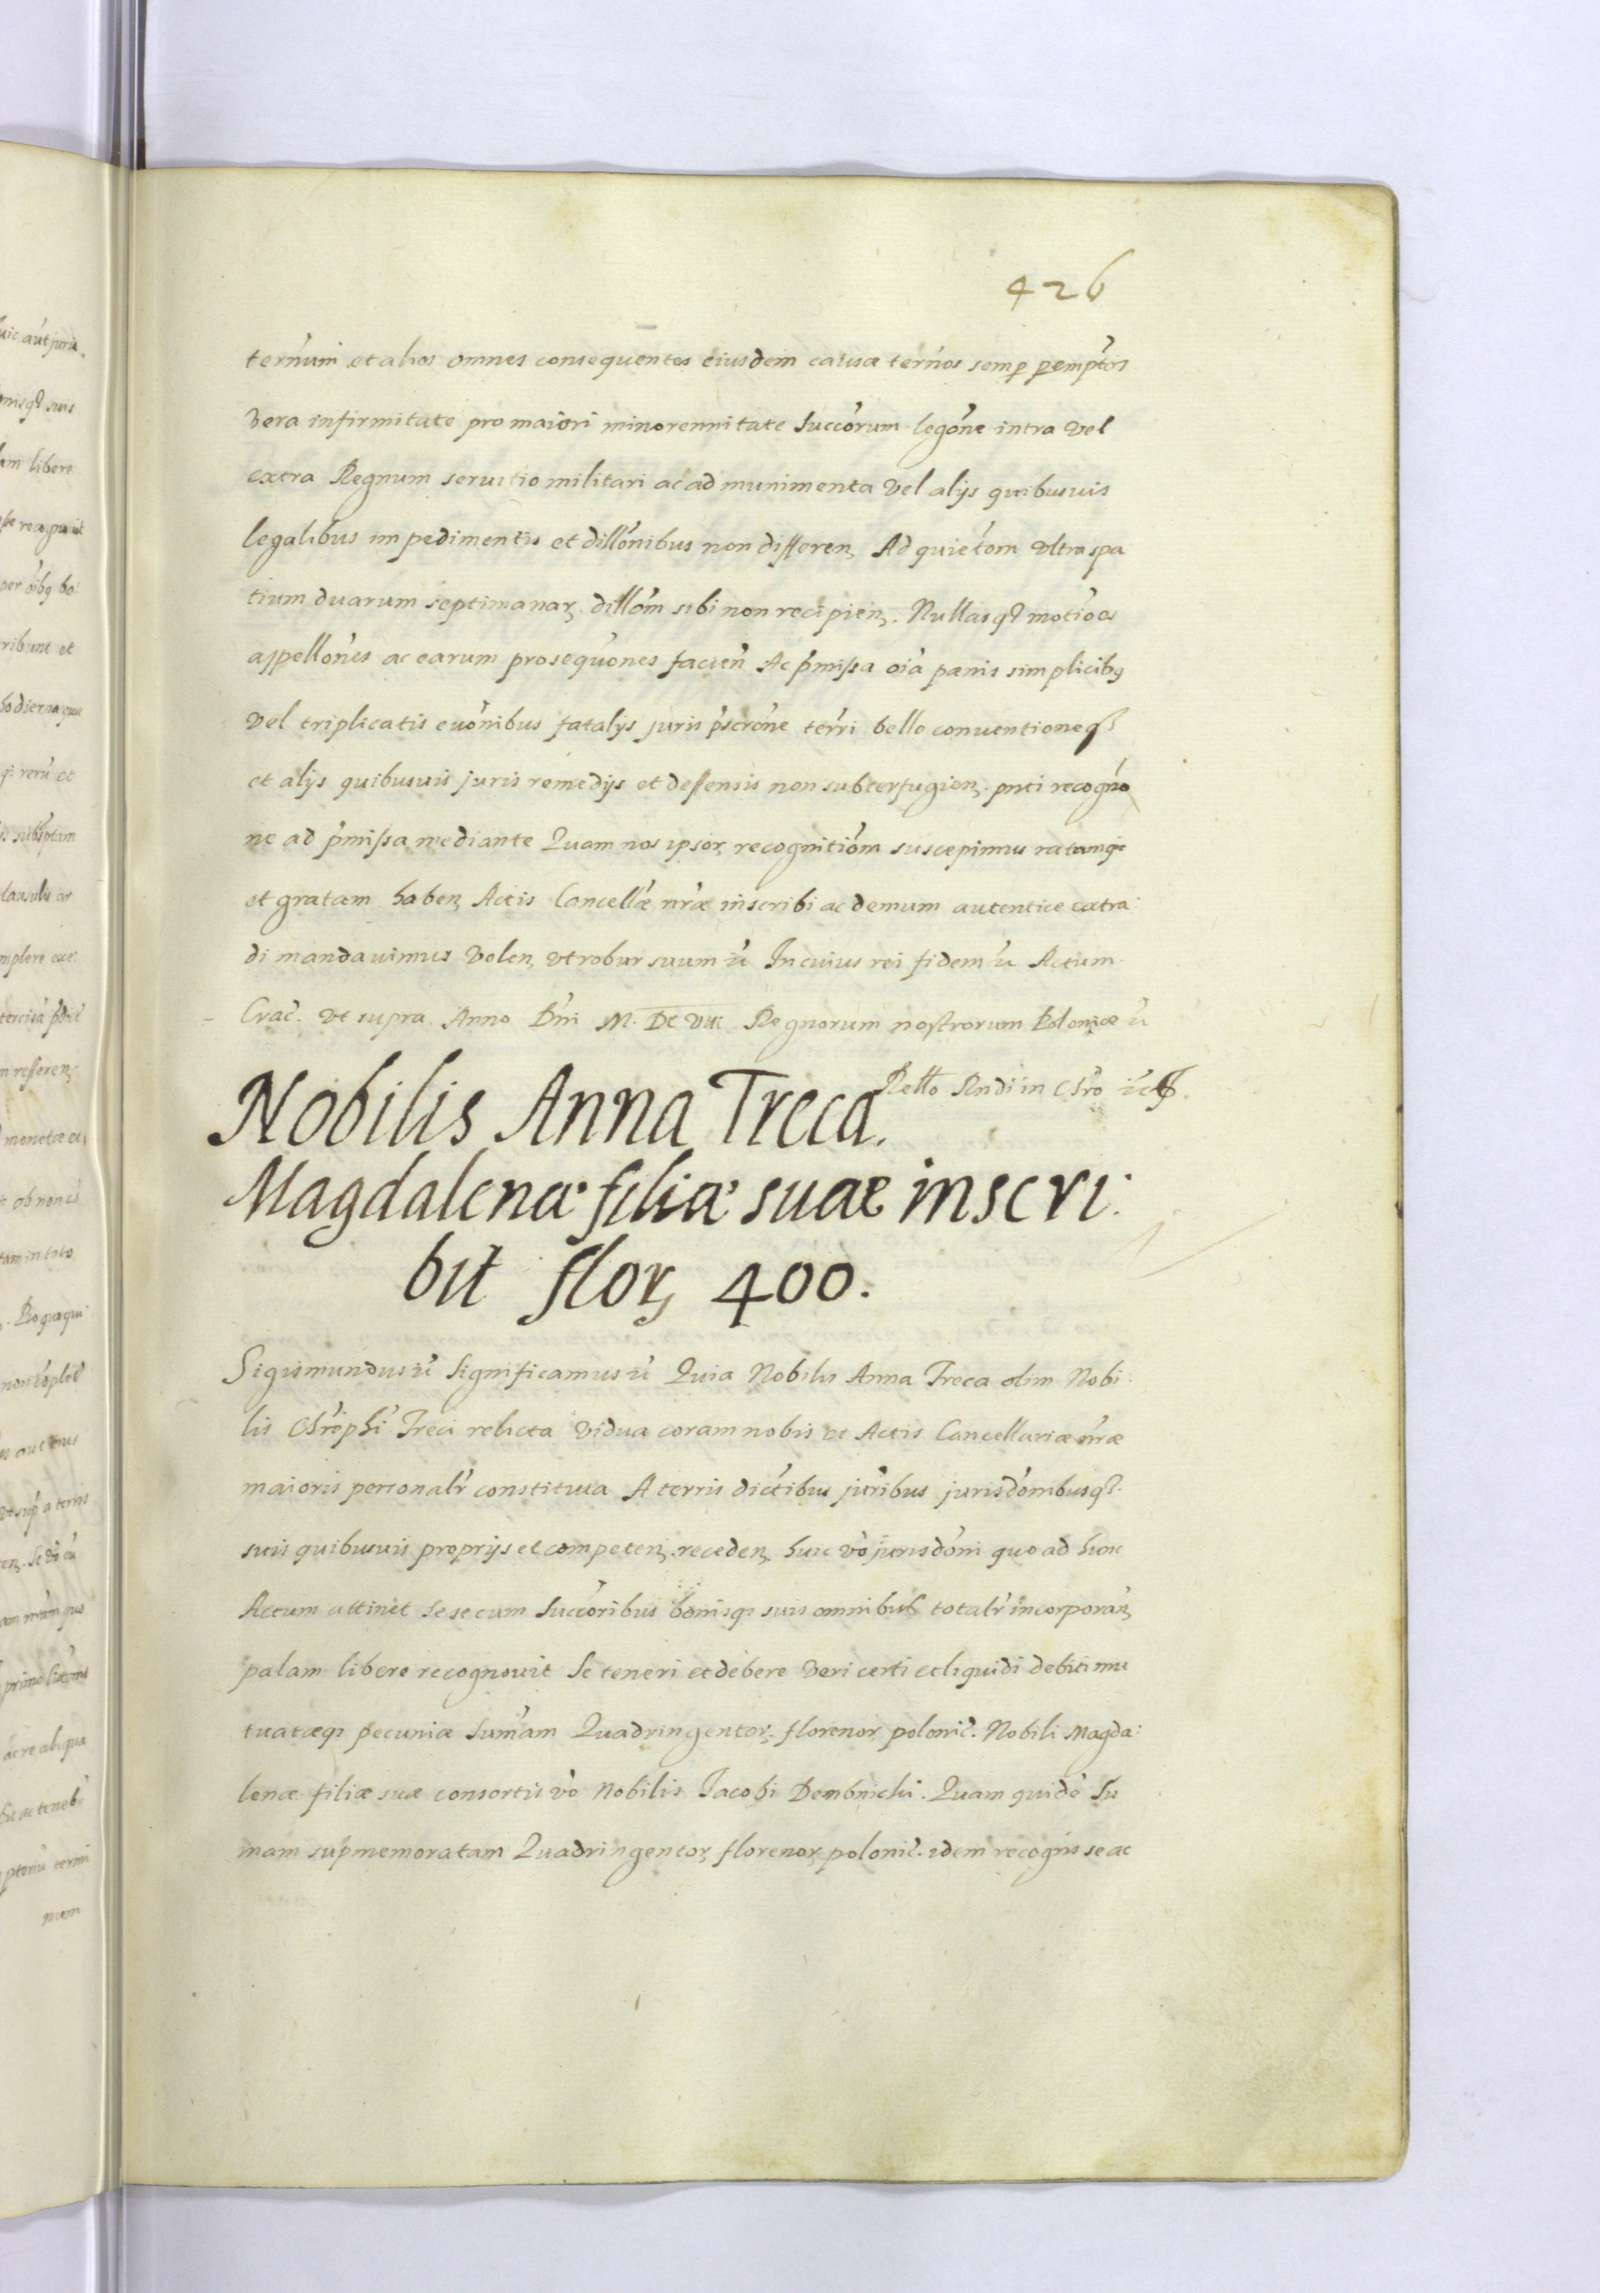 426
ternum et alios omnes consequentes eiusdem causæ ternos semp pempto͂s
Vera infirmitate pro maiori minorennitate Succorum legone intra Vel
extra Regnum seruitio militari ac ad munimenta Vel alijs quibusuis
legalibus impedimentis et dillonibus non differen, Ad quietom Vltra spa
tium duarum septimanar, dillom sibi non recipien, Nullasq3 motioes
appellones ac earum prosequones facien Ac pmissa oia pœnis simplicibq
Vel triplicatis euonibus fatalijs juris pscrone terri bello conuentioneq3
et alijs quibusuis juris remedijs et deffensis non subterfugien, pnti recogno
ne ad pmissa mediante Quam nos ipsor, recognitiom suscepimus ratamq3
et gratam haben, Actis Cancellæ nræ inscribi ac demum autentice extra:
di mandauimus Volen, vt robur suum ꝛc̃ In cuius rei fidem ꝛc̃ Actum
Crac. Vt supra Anno Dni M. DC VIII Regnorum nostrorum Poloniæ ꝛc̃
Rello Rndi in Chro ꝛc̃
Nobilis Anna Treca.
Magdalenæ filiæ suæ inscri:
bit flor, 400.
Sigismundus ꝛc̃ Significamus ꝛc̃ Quia Nobilis Anna Treca olim Nobi:
lis Chrophi Treci relicta Vidua coram nobis et Actis Cancellariæ nræ
maioris personalr constituta A terris dictibus juribus jurisdombusq3
suis quibusuis proprijs et competen, receden, huic vo jurisdoni quo ad hunc
Actum attinet Se se cum Succoribus bonisq3 suis omnibus totalr incorporan,
palam libere recognouit Se teneri et debere Veri certi et liquidi debiti mu
tuatæq3 pecuniæ Sumam Quadringentor, florenor polonic. Nobili Magda:
lenæ filiæ suæ consorti vo Nobilis Jacobi Dembnicki. Quam quide Su
mam supmemoratam Quadringentor, florenor, polonic. idem recogns se ac